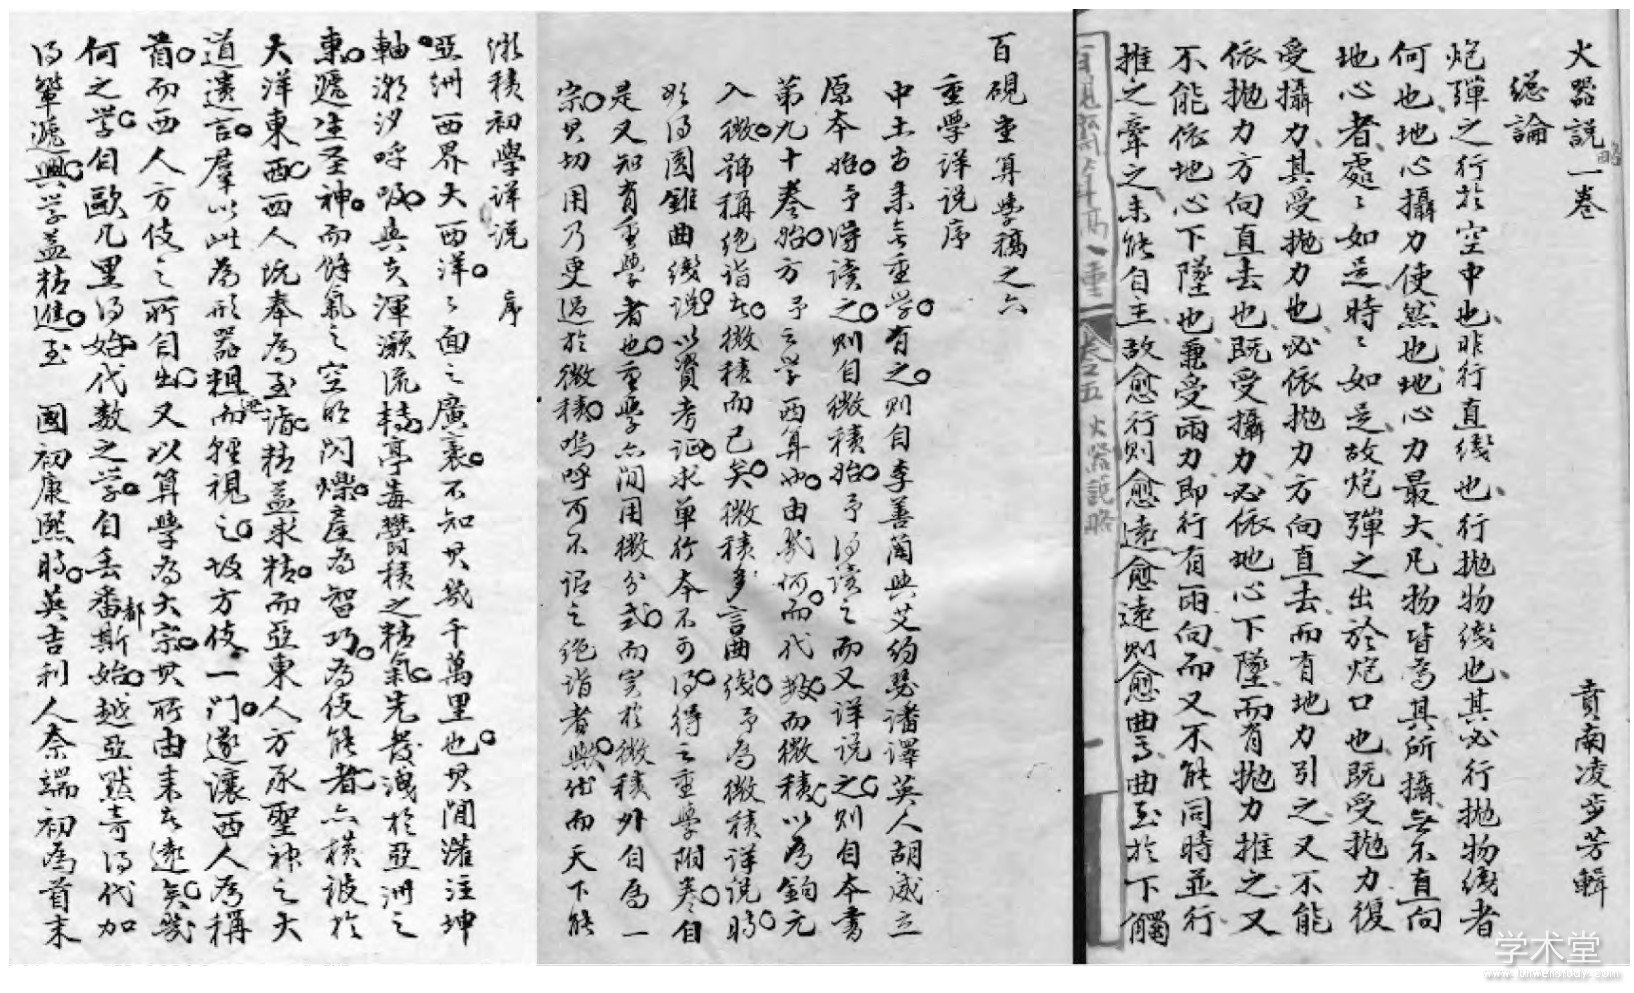 火器說略一卷
賁南凌步芳輯
總論
炮彈之行於空中也非行直綫也行拋物綫也其必行拋物綫者
何也地心攝力使然也地心力最大凡物皆為其所攝無不直向
地心者處〻如是時〻如是故炮彈之出於炮口也既受拋力復
受攝力其受拋力也必依拋力方向直去而有地力引之又不能
依拋力方向直去也既受攝力必依地心下墜而有拋力推之又
不能依地心下墜也兼受兩力即行有兩向而又不能同時並行
推之牽之未能自主故愈行則愈遠愈遠則愈曲焉曲至於下觸
卷五 火器說略
百硯堂算學稿之六
重學詳說序
中土古來無重學有之則自李善蘭與艾約瑟譯英人胡威立
原本始予得讀之則自微積始予得讀之而又詳說之則自本書
第九十卷始方予之學西算也由幾何而代數而微積以為鉤元
入微號稱絕詣者微積而已矣微積多言曲綫予為微積詳說時
欲得圓錐曲綫說以資考證求單行本不可得得之重學附卷自
是又知有重學者也重學亦間用微分式而實於微積外自為一
宗其切用乃更過於微積嗚呼可不謂之絕詣者與然而天下能
微積初學詳說 序
亞洲西界大西洋〻面之廣袤不知其幾千萬里也其間灌注坤
軸潮汐呼吸與夫渾灝流轉亭毒欝積之精氣先發洩於亞洲之
東遞生圣神而餘氣之空明閃爍產為智巧為伎能者亦橫被於
大洋東西西人既奉為至詣精益求精而亞東人方承聖神之大
道遺言羣以此為形器粗而輕視之故方伎一門遂讓西人為稱
首而西人方伎之所自出又以算學為大宗其所由來者遠矣幾
何之學自歐几里得始代數之學自丟番都斯始越亞默奇得代加
得輩遞興学益精進至 國初康熙時英吉利人奈端初為首末
学术堂
www.lunwenstudy.com